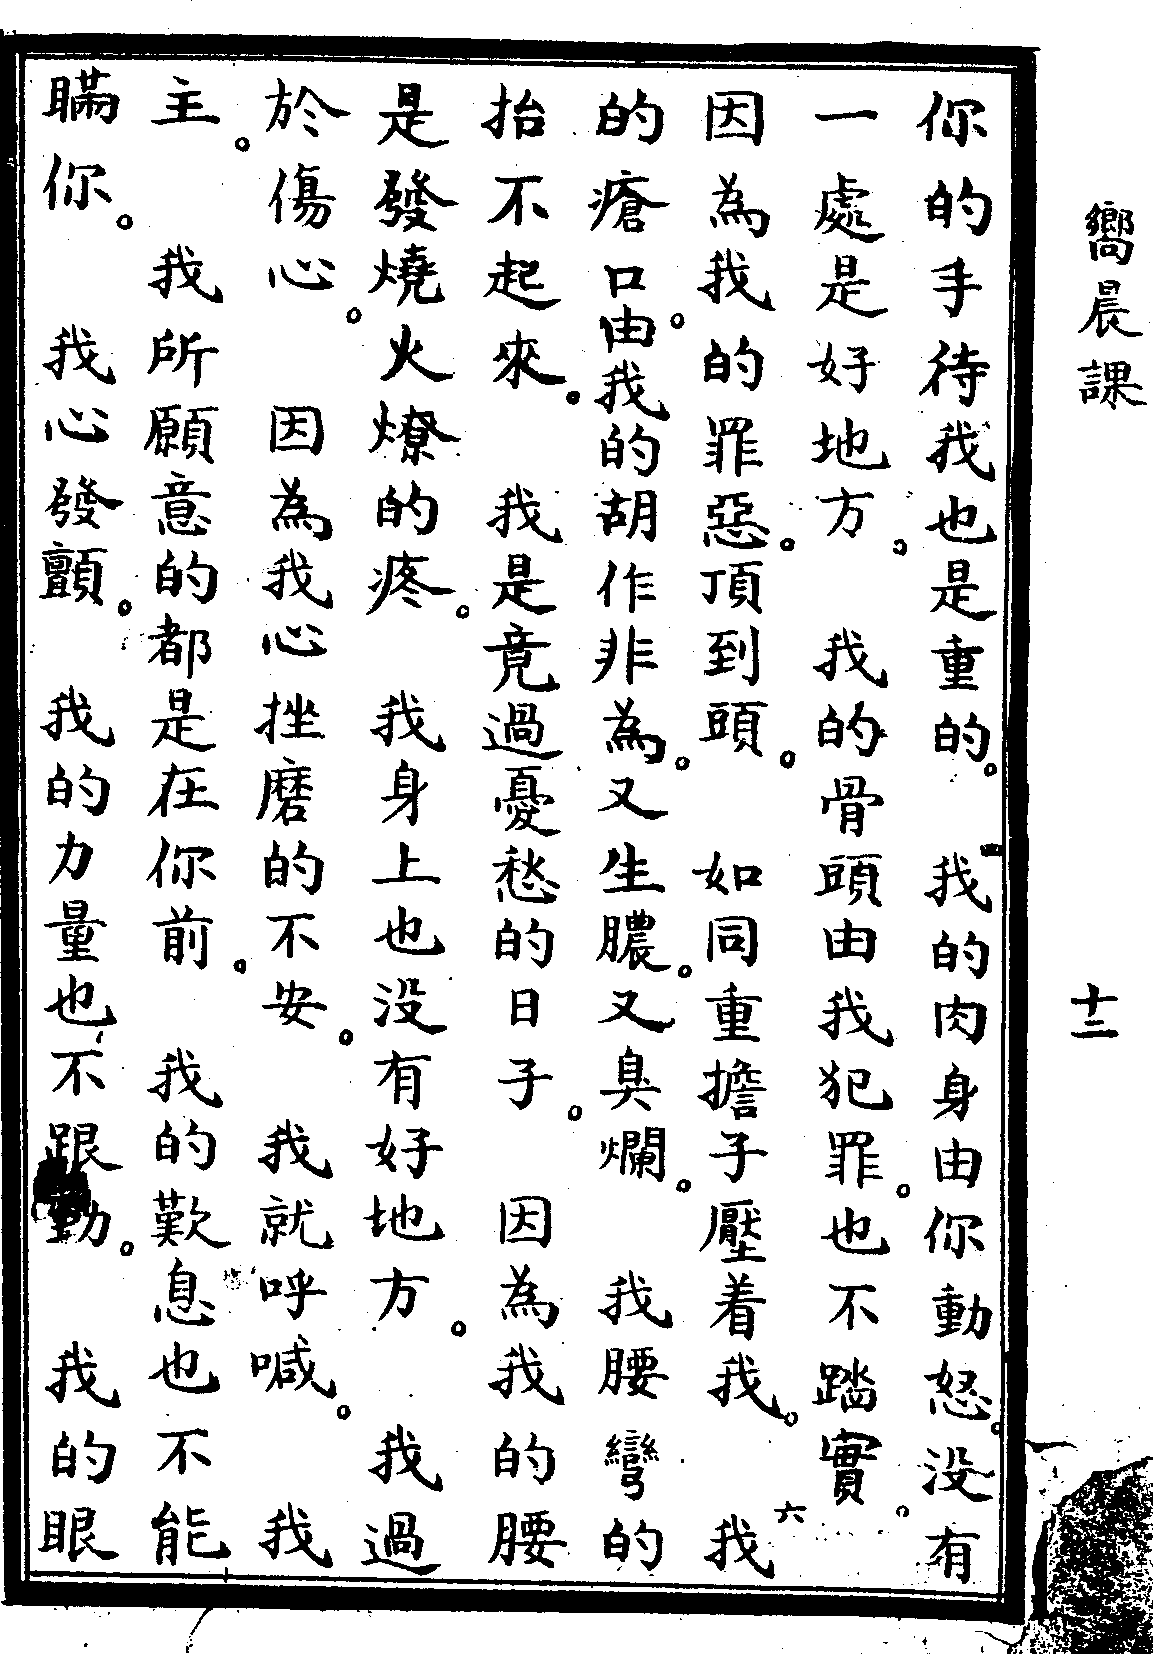 嚮晨課
十二
你的手待我也是重的。 四 我的肉身由你動怒。没有
一處是好地方。 我的骨頭由我犯罪。也不踏實。
因為我的罪惡。頂到頭。 如同重擔子壓着我。 六 我
的瘡口。由我的胡作非為。又生膿。又臭爛。 我腰彎的
抬不起來。 我是竟過憂愁的日子。 因為我的腰
是發燒火燎的疼。 我身上也没有好地方。 我過
於傷心。 因為我心挫磨的不安。 我就呼喊。 我
主。 我所願意的都是在你前。 我的歎息也不能
瞞你。 我心發顫。 我的力量也不跟勁。 我的眼